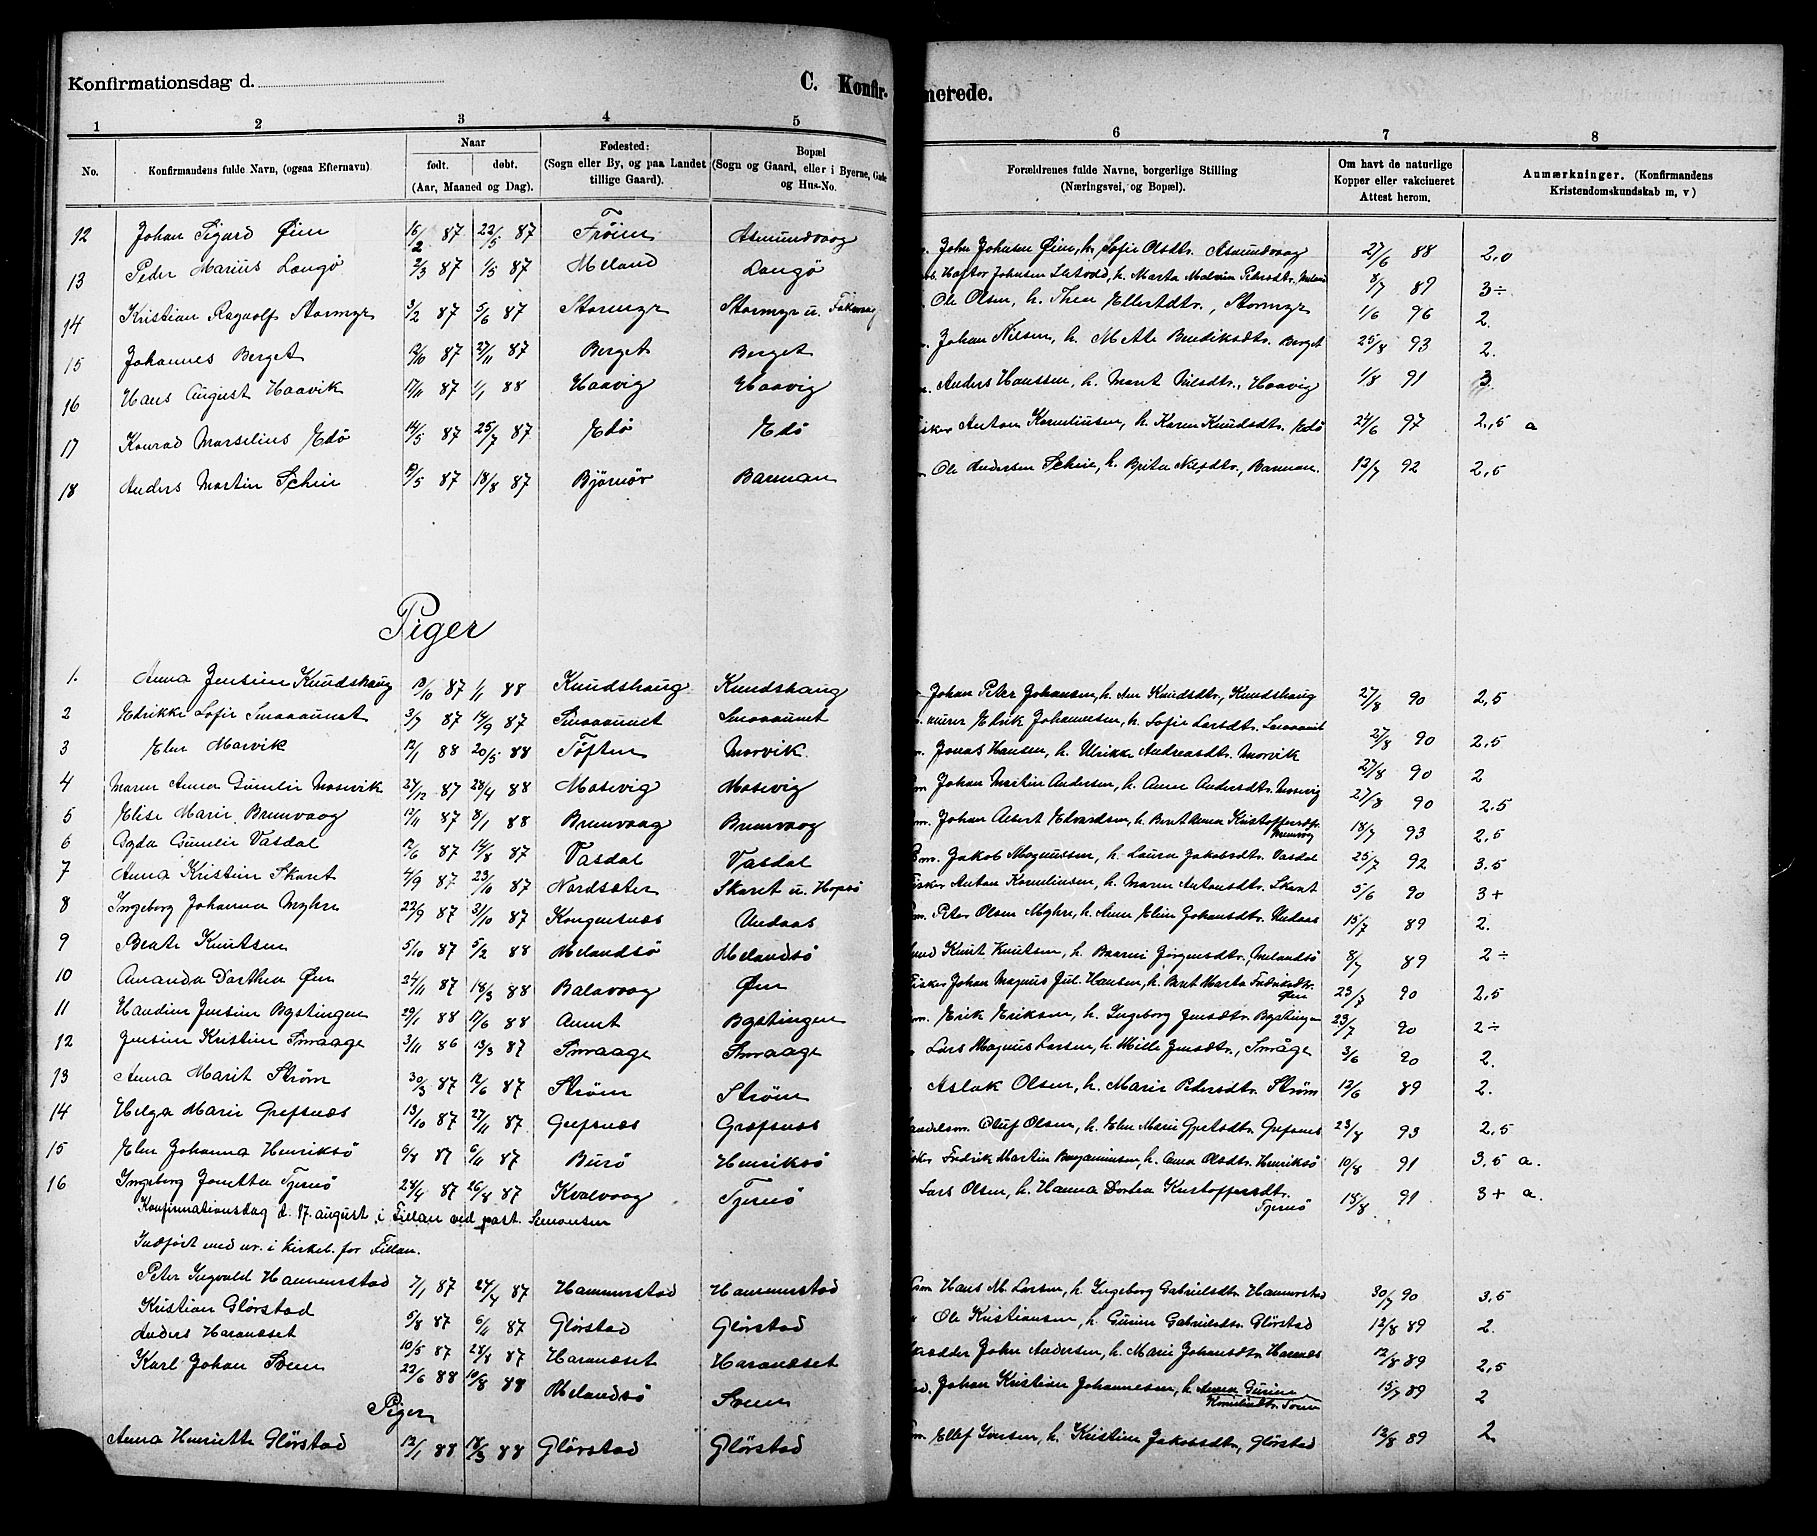 Konfirmationsdag d. C. Konfir- merede.
1 2 3 4 5 6 7 8
No. Konfirmandens fulde Navn, (ogsaa Efternavn) Naar født. døbt. (Aar, Maaned og Dag). Fødested: (Sogn eller By, og paa Landet tillige Gaard). Bopæl (Sogn og Gaard, eller i Byerne, Gade og Hus-No. Forældrenes fulde Navne, borgerlige Stilling (Næringsvei, og Bopæl). Om havt de naturlige Kopper eller vakcineret Attest herom. Anmærkninger. (Konfirmandens Kristendomskundskab m, v)
12 Johan Sigurd Øien 16/2 87 22/5 87 Trøen Asmundvaag John Johnsen Øien, h. Sofie Olsdtr. Asmundvaag 27/6 88 2,0
13 Peder Marius Langø 2/3 87 1/5 87 Meland Langø Haftor Johnsen h. Marta Malvine Pedersdtr. 8/7 89 3÷
14 Kristian Ragnolf Stormyr 3/2 87 5/6 87 Stormyr Stormyr u. Ole Olsen, h. Thea Ellefsdtr., Stormyr 1/6 96 2.
15 Johannes Berget 12/10 87 27/11 87 Berget Berget Johan Nilsen, h. Mette Bendiksdtr. Berget 25/8 93 2.
16 Hans August Haavik 17/11 87 1/1 88 Haavig Haavig Anders Hanssen, h. Marit Nilsdtr., Haavig 1/8 91 3.
17 Konrad Marselius Edø 14/5 87 25/7 87 Edø Edø Fisker Anton Korneliussen, h. Karen Knudsdtr. Edø 24/6 97 2,5 a
18 Anders Martin Schei 12/5 87 18/8 87 Bjørnør Barman Ole Andersen Schei, h. Brita Nilsdtr., Barman. 12/7 92 2,5
Piger
1. Anna Jensine Knudshaug 13/10 87 1/1 88 Knudshaug Knudshaug Johan Peter Johansen, h. Ane Knudsdtr., Knudshaug 27/8 90 2,5
2 Edrikke Sofie Smaaaunet 3/7 87 14/9 87 Smaaaunet Smaaaunet Elrik Johannesen, h. Sofie Larsdtr. Smaaaunet 27/8 90 2,5
3 Elen Morvik 12/1 88 20/5 88 Tøften Morvik. Jonas Hansen, h. Ulrikke Andreasdtr. Morvik 27/8 90 2
4 Maren Anna Gunelie Mosevik 27/12 87 24/4 88 Mosevig Mosevig Johan Martin Andersen, h. Anne Andersdtr. Mosevig 27/8 90 2,5
5 Elise Marie Brunvaag 12/11 87 8/1 88 Brunvaag Brunvaag Johan Albert Edvardsen, h. Berit Anna Kristoffersdtr. Brunvaag 18/7 93 2,5
6 Gyda Gunelie Vasdal 12/6 87 14/8 87 Vasdal Vasdal Jakob Magnussen, h. Laura Jakobsdtr. Vasdal 25/7 92 3.5
7 Anna Kristine Skaret 4/9 87 23/10 87 Nordsæter Skaret u. Hopsø Fisker Anton Kornelinsen, h. Maren Antonsdtr. Skaret 5/6 90 3+
8 Ingeborg Johanna Myhre 22/9 87 31/10 87 Kongensnæs Undaas Peter Olsen Myhre, h. Anne Eline Johansdtr. Undaas 15/7 89 2.
9 Beate Knutsen 5/10 87 5/2 88 Melandsø Melandsø Knut Knutsen, h. Jørgensdtr., Melandsø 8/7 89 2÷
10 Amanda Dorthea Øien 24/11 87 18/3 88 Balavaag Øien Fisker Johan Magnus Jul. Hansen, h. Berit Marta Fredriksdtr. Øien 23/7 90 2,5
11 Handine Jensine Bystingen 29/1 88 17/6 88 Aunet Bystingen Erik Eriksen, h. Ingeborg Jensdtr. Bystingen 23/7 90 2÷
12 Jensine Kristine Smaage 3/11 86 13/3 87 Smaage Smaage Lars Magnus Larsen, h. Mille Jensdtr., Småge 3/6 90 2.
13 Anna Marit Strøm 30/3 87 12/6 87 Strøm Strøm Aslak Olsen, h. Marie Pedersdtr. Strøm 12/6 89 2.
14 Helga Marie Grefsnæs 13/10 87 27/11 87 Grefsnæs Græfsnæs Oluf Olsen, h. Elen Marie Grefsnes 23/8 93 2,5
15 Elen Johanna Henriksø 6/8 87 6/11 87 Burø Henriksø Fredrik Martin Benjaminsen, h. Anna Olsdtr. Henriksø 10/8 91 3,5 a.
16 Ingeborg Jonetta Tjernø 24/4 87 26/8 87 Kvalvaag Tjernø Lars Olsen, h. Hanna Dortea Kristoffersdtr. Tjernø 18/8 91 3+ a.
Konfirmationsdag d. 17. august i Fillan ved past. Simonsen
Indført med nr. i kirkeb. for Fillan.
Peter Ingvald Hammerstad 7/1 87 24/4 87 Hammerstad Hammerstad Hans M. Larsen, h. Ingeborg Gabrielsdtr. Hammerstad 30/7 90 3,5
Kristian Glørstad 5/8 87 6/11 87 Glørstad Glørstad Ole Kristiansen, h. Gurine Gabrielsdtr. Glørstad 12/8 89 2.
Anders Haranæset 10/5 87 28/8 87 Haranæset Haranæset Skrædder John Andersen, h. Marie Johansdtr. Haranæs 12/8 89 2,5
Karl Johan Soem 22/6 88 19/8 88 Melandsø Soem Johan Kristian Johannesen, h. Anna Gurine Kornelidtr. Soem 15/7 89 2
Piger
Anna Henriette Glørstad 12/1 88 18/3 88 Glørstad Glørstad Ellef Jensen, h. Kristine Jakobsdtr., Glørstad 13/8 89 2